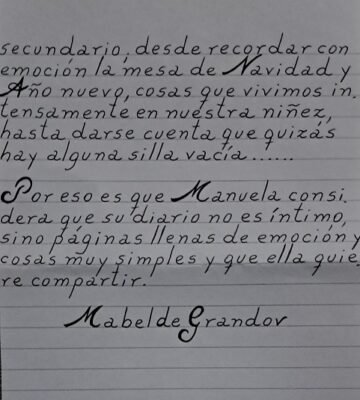 secundario, desde recordar con
emoción la mesa de Navidad y
Año nuevo, cosas que vivimos in.
tensamente en nuestra niñez,
hasta darse cuenta que quizás
hay alguna silla vacía......
Por eso es que Manuela consi.
dera que su diario no es íntimo,
sino páginas llenas de emoción y
cosas muy simples y que ella quie.
re compartir.
Mabel de Grandov